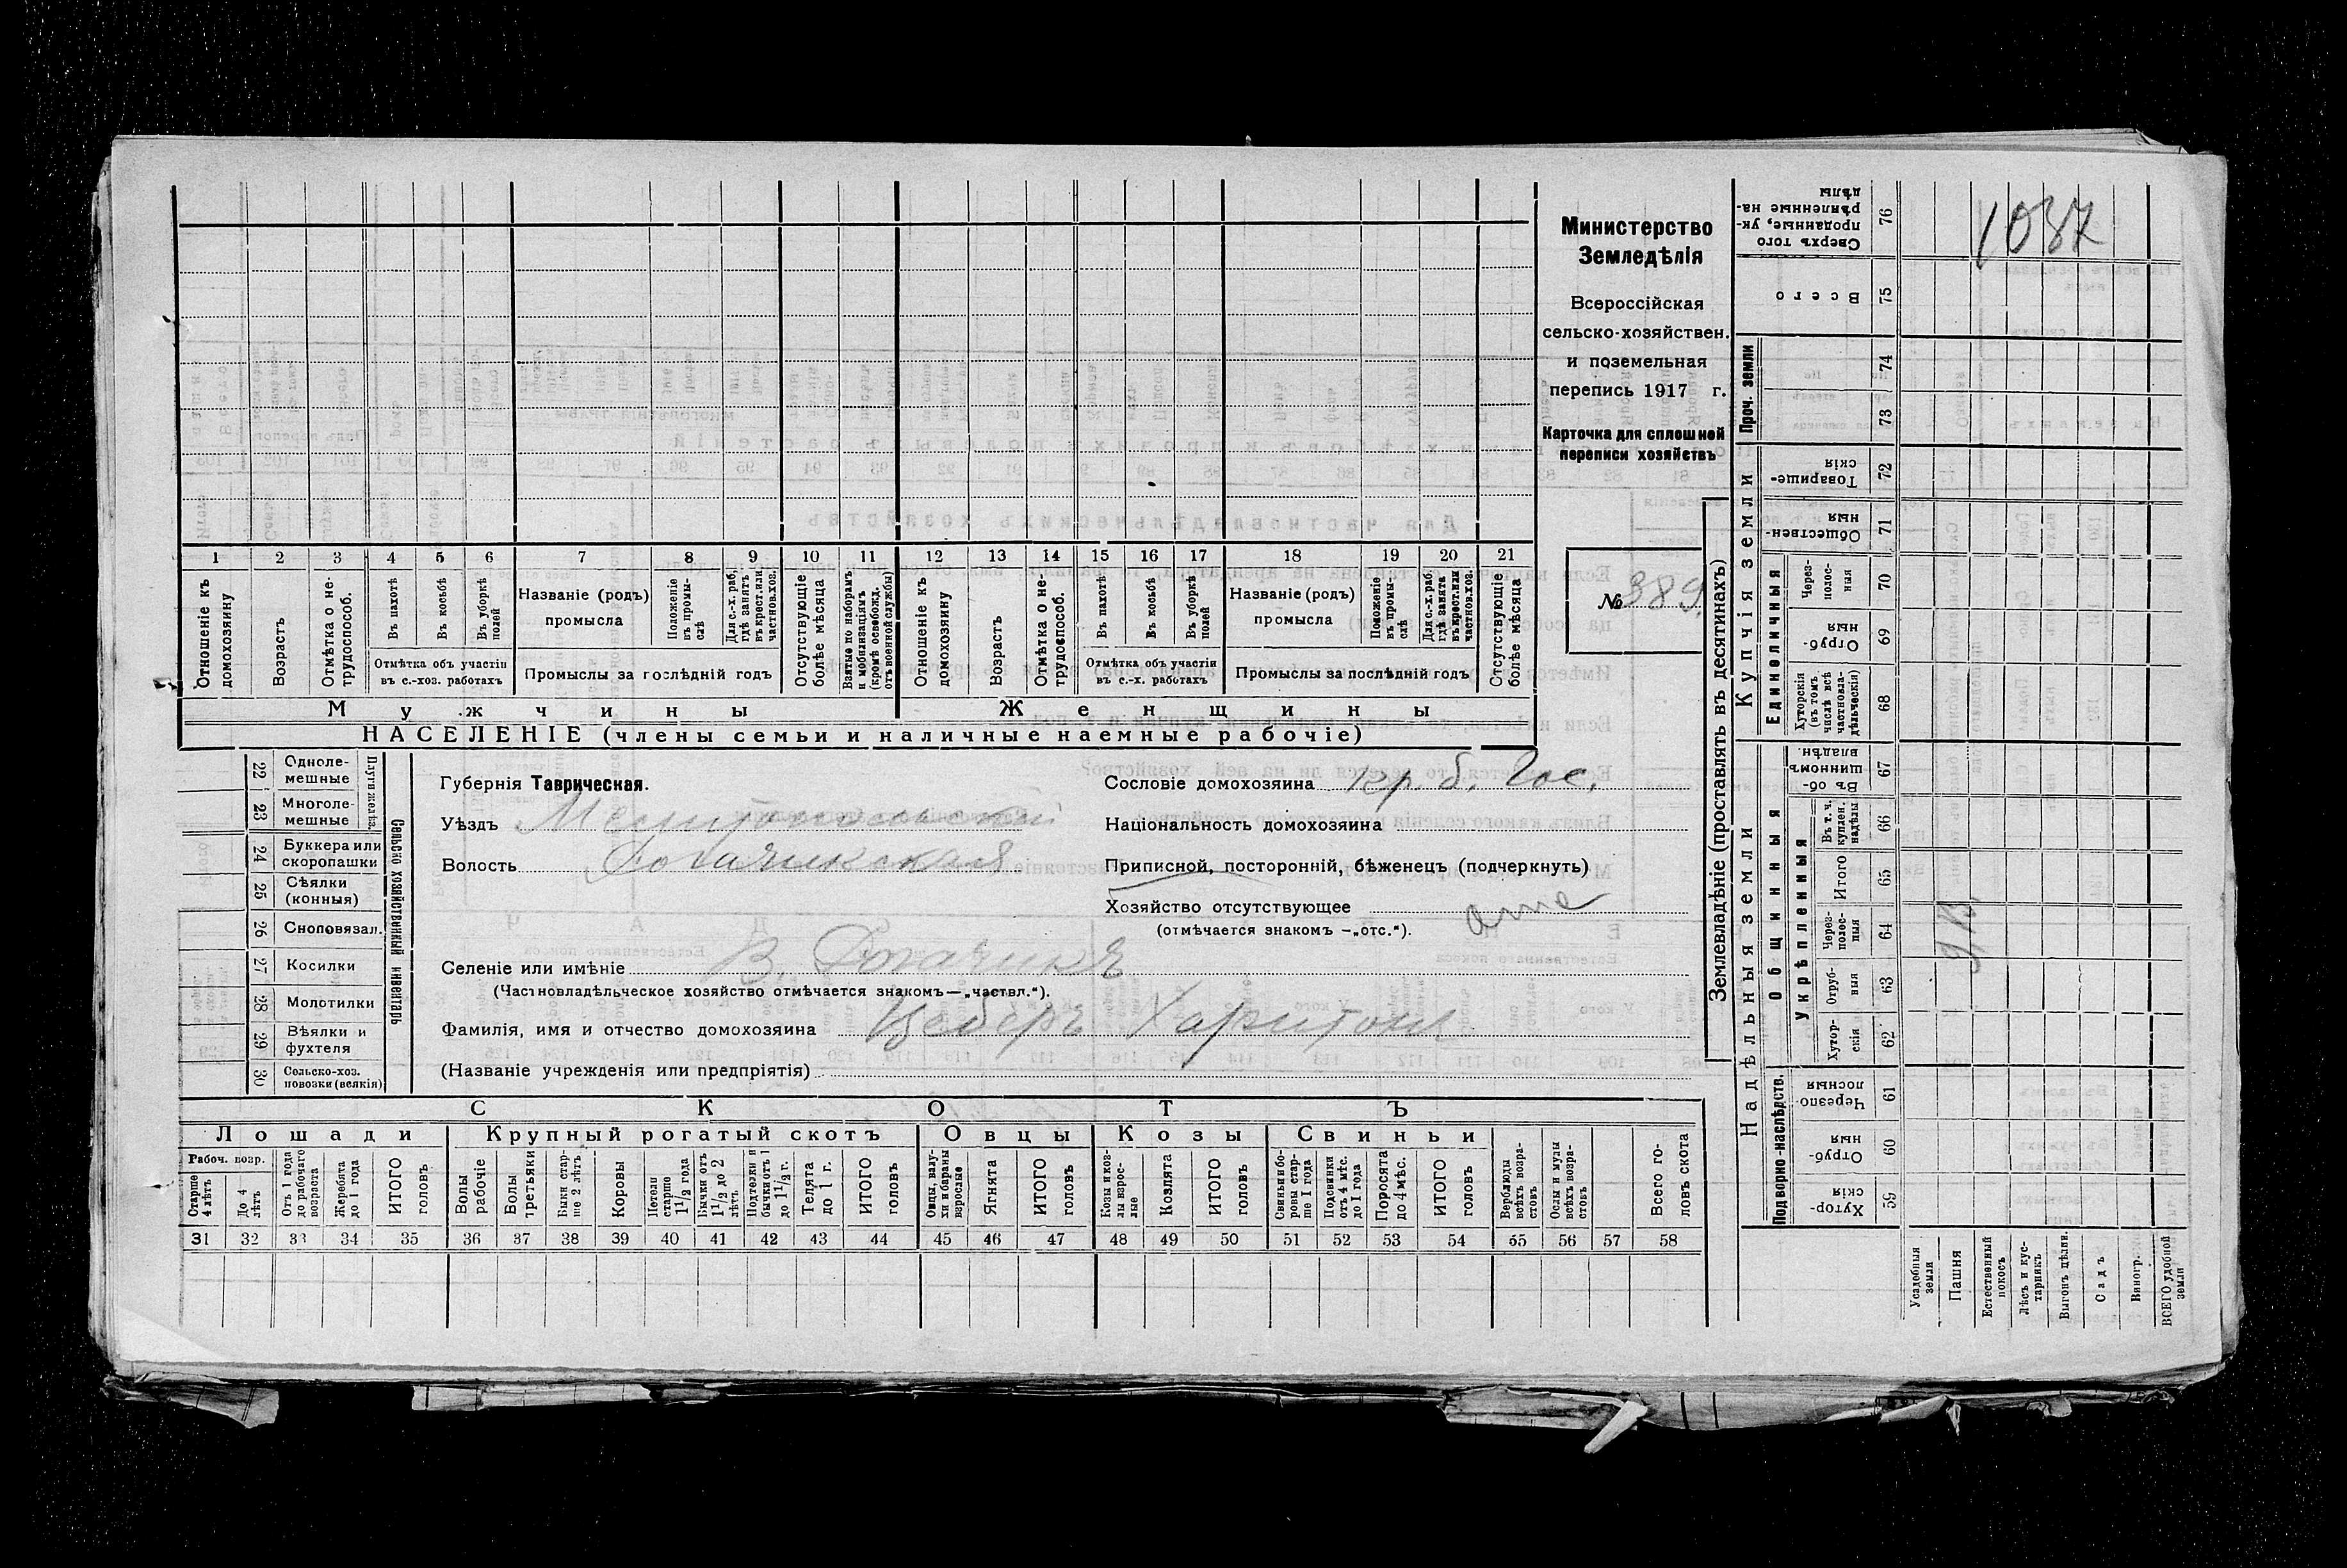 1037
Министерство
Земледѣлія
Всероссійская
сельско-хозяйствен.
и поземельная
перепись 1917 г.
Карточка для сплошной
переписи хозяйствъ
№ 389
1 2 3 4 5 6 7 8 9 10 11 12 13 14 15 16 17 18 19 20 21
Отношеніе къ домохозяину
Возрастъ
Отмѣтка о не-трудоспособ.
Въ пахотѣ
Въ косьбѣ
Въ уборкѣ полей
Отмѣтка объ участіи
въ с.-хоз. работахъ
Названіе (родъ)
промысла
Положеніе въ промы-слѣ
Для с.-х. раб. гдѣ занятъ въ крест. или частнов. хоз.
Промыслы за послѣдній годъ
Отсутствующіе болѣе мѣсяца
Взятые по наборамъ и мобилизаціямъ (кромѣ освобожд. отъ военной службы)
Отношеніе къ домохозяину
Возрастъ
Отмѣтка о не-трудоспособ.
Въ пахотѣ
Въ косьбѣ
Въ уборкѣ полей
Отмѣтка объ участіи
въ с.-х. работахъ
Названіе (родъ)
промысла
Положеніе въ промы-слѣ
Для с.-х. раб. гдѣ занята въ крест. или частнов. хоз.
Промыслы за послѣдній годъ
Отсутствующіе болѣе мѣсяца
Мужчины
Женщины
НАСЕЛЕНІЕ (члены семьи и наличные наемные рабочіе)
22 Одноле-мешные
23 Многоле-мешные
Плуги желѣз.
24 Буккера или скоропашки
25 Сѣялки (конныя)
26 Сноповязал.
27 Косилки
28 Молотилки
29 Вѣялки и фухтеля
30 Сельско-хоз. повозки (всякія)
Сельско хозяйственный инвентарь
Губернія Таврическая.
Уѣздъ Мелитопольскій
Волость Рогачикская
Сословіе домохозяина кр. б. Гос.
Національность домохозяина
Приписной, посторонній, бѣженецъ (подчеркнуть)
Хозяйство отсутствующее отс
(отмѣчается знакомъ —„отс.“).
Селеніе или имѣніе В. Рогачикъ
(Частновладѣльческое хозяйство отмѣчается знакомъ—„частвл.“).
Фамилія, имя и отчество домохозяина Цеберъ Харитонъ
(Названіе учрежденія или предпріятія)
СКОТЪ
Лошади
Крупный рогатый скотъ
Овцы
Козы
Свиньи
Рабоч. возр.
Старше 4 лѣтъ
До 4 лѣтъ
Отъ 1 года до рабочаго возраста
Жеребята до 1 года
ИТОГО головъ
Волы рабочіе
Волы третьяки
Быки стар-ше 2 лѣтъ
Коровы
Нетели старше 1 1/2 года
Бычки отъ 1 1/2 до 2 лѣтъ
Подтелки и бычки отъ 1 до 1 1/2 г.
Телята до 1 г.
ИТОГО головъ
Овцы, валу-хи и бараны взрослые
Ягнята
ИТОГО головъ
Козы и коз-лы взрос-лые
Козлята
ИТОГО головъ
Свиньи и бо-ровы стар-ше 1 года
Подсвинки отъ 4 мѣс. до 1 года
Поросята до 4 мѣс.
ИТОГО головъ
Верблюды всѣхъ возра-стовъ
Ослы и мулы всѣхъ возра-стовъ
Всего го-ловъ скота
31 32 33 34 35 36 37 38 39 40 41 42 43 44 45 46 47 48 49 50 51 52 53 54 55 56 57 58
Землевладѣніе (проставлять въ десятинахъ)
Купчія земли
Надѣльныя земли
Сверхъ того проданные, ук-рѣпленные на-дѣлы 76
Всего 75
Проч. земли 74 73
Товарище-скія 72
Обществен-ныя 71
Единоличныя
Через-полос-ныя 70
Отруб-ныя 69
Хуторскія (въ томъ числѣ всѣ частновла-дѣльческія) 68
Общинныя
Въ об-щинномъ владѣн. 67
Укрѣпленныя
Въ т. ч. куплен. надѣлы 66
Итого 65
Через-полос-ныя 64
Отруб-ныя 63
Хутор-скія 62
Подворно-наслѣдств.
Черезпо-лосныя 61
Отруб-ныя 60
Хутор-скія 59
Усадебныя земли
Пашня
Естественный покосъ
Лѣсъ и кус-тарникъ
Выгонъ цѣлин.
Садъ
Виногр.
ВСЕГО удобной земли